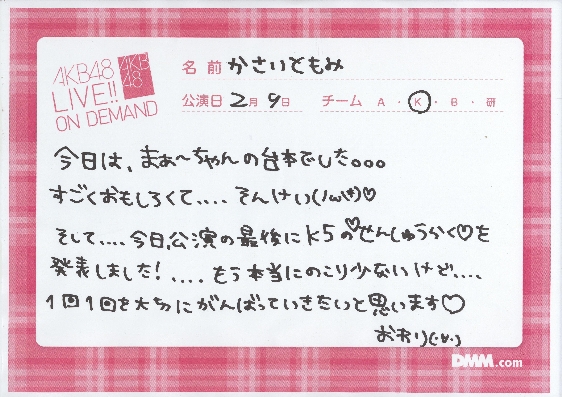 AKB48
LIVE!!
ON DEMAND
AKB
48
名前 かさいともみ
公演日 2月 9日 チーム A・K・B・研
今日は、まぁ〜ちゃんの台本でした。。。
すごくおもしろくて....そんけい(ノω\*)♡
そして....今日、公演の最後にK5の♡せんしゅうらく♡を
発表しました! ....もう本当にのこり少ないけど....
1回1回を大切にがんばっていきたいと思います♡
おわり(·∀·)
DMM.com